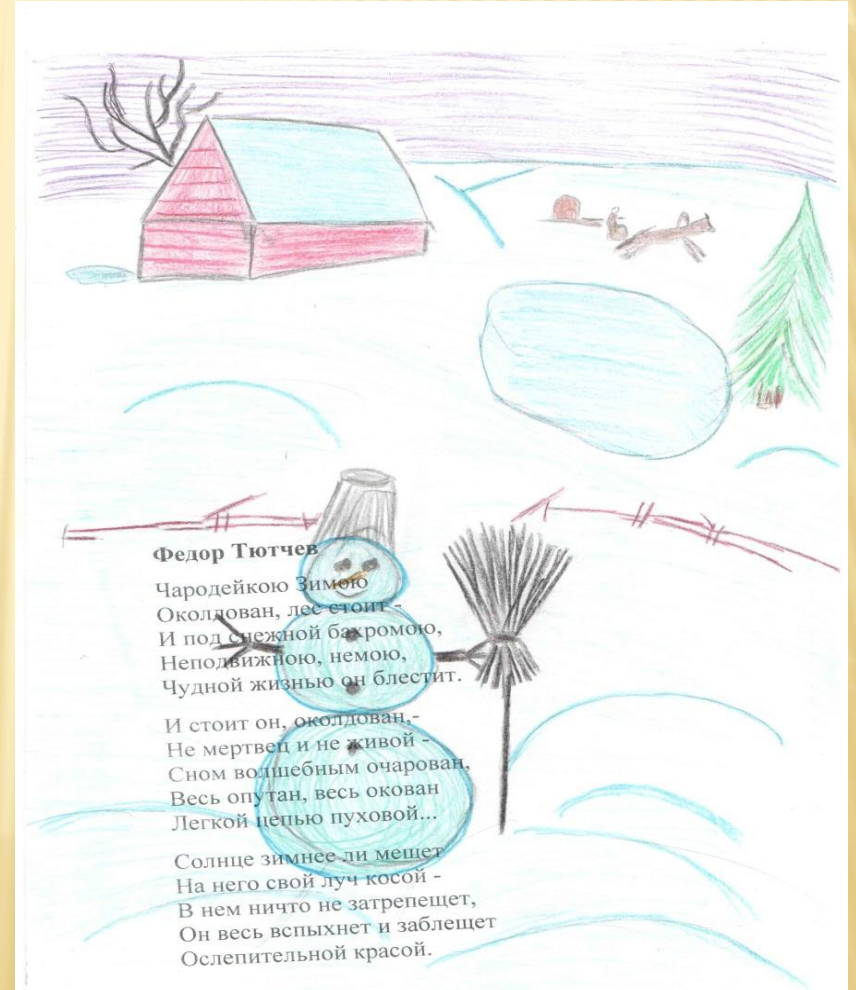 Федор Тютчев
Чародейкою Зимою
Околдован, лес стоит -
И под снежной бахромою,
Неподвижною, немою,
Чудной жизнью он блестит.
И стоит он, околдован,-
Не мертвец и не живой -
Сном волшебным очарован,
Весь опутан, весь окован
Легкой цепью пуховой...
Солнце зимнее ли мещет
На него свой луч косой -
В нем ничто не затрепещет,
Он весь вспыхнет и заблещет
Ослепительной красой.